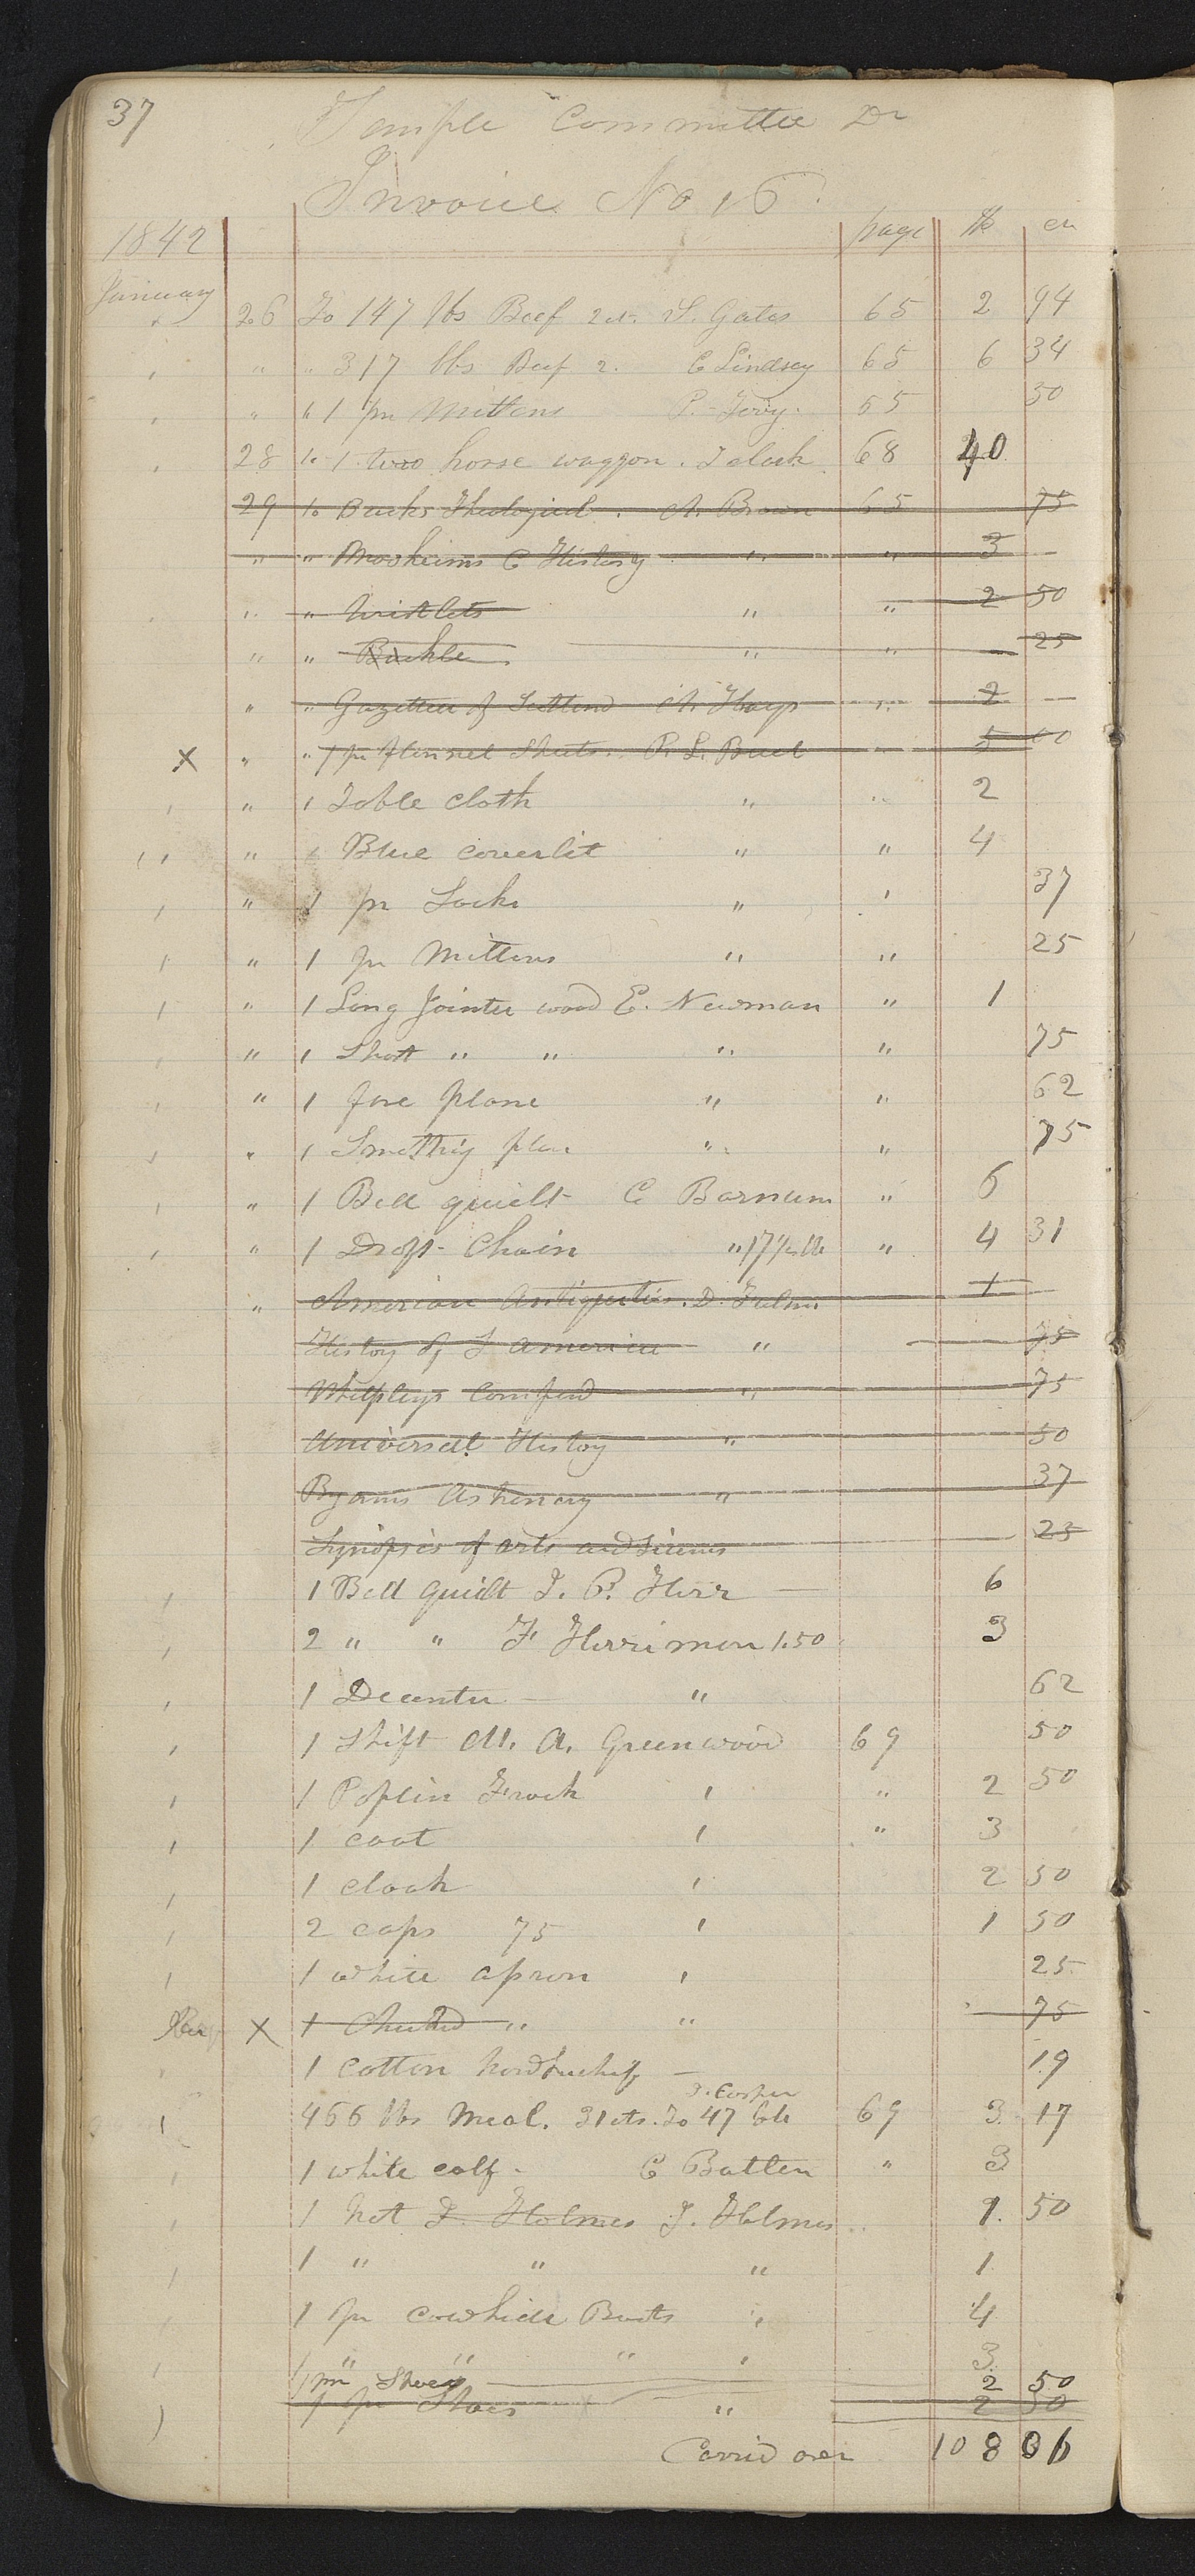 37 Temple Committee Dr
Invoice No 16
1842 page $ cn
January
26 To 147 lbs Beef 2 ct. S. Gates 65 2 94
" " 317 lbs Beef 2. C Lindsey 65 6 34
" " 1 pr Mittens P. 65 50
28 to 1 two horse waggon. J clark 68 40
29 to Bucks Theological. A. Brown 65 75
" " Mosheims C History " " 3 —
" " Wristlets " " 2 50
" " Buckle " " 25
" " Gazetteer of A. Hays " 2 —
X " " 1 pr flannel Sheets. P. L. Buel " 5 00
" 1 Table cloth " " 2
" 1 Blue coverlit " " 4
" 1 pr Socks " " 37
" 1 pr Mittens " " 25
" 1 Long Jointer wood E. Newman " 1
" 1 Short " " " " 75
" 1 fore plane " " 62
" 1 Smothig plan " " 75
" 1 Bed quielt C Barnum " 6
" 1 Draft Chain " 17 1/4 lb " 4 31
" American Antiquities. D. 1
History of S America " 75
Whelpleys Compend " 75
Universal History " 50
Byrams Astronery " 37
Synopsis of arts and siences 25
1 Bed quilt J. P. Herr — 6
2 " " F Herrimon 1.50 3
1 Decenter — " 62
1 Shift M. A. Greenwood 69 50
1 Poplin Frock " " 2 50
1 coat " " 3
1 cloak " 2 50
2 caps 75 " 1 50
1 white apron " 25
X 1 Checked " " 75
1 cotton handkuchif — 19
J. Cosper
466 lbs Meal. 31 cts. To 47 lots 69 3 17
1 white calf - C Batten " 3
1 hat J. Holmes J. Holmes " 1. 50
1 " " " 1
1 pr cowhide Boots " 4
1 " " " " 3
1 pr Shoes 2 50
1 pr Shoes " 2 50
Carrid over 108 06